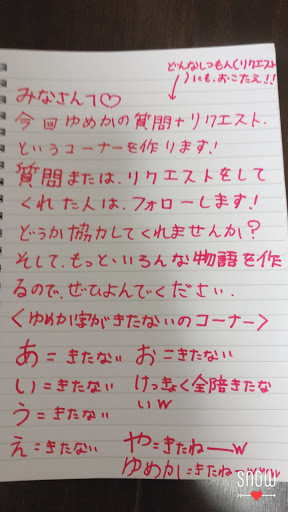 どんなしつもん(リクエスト
)にも、おこたえ!!
みなさんて♡
今回ゆめかの質問+リクエスト、
というコーナーを作ります!
質問または、リクエストをして
くれた人は、フォローします!
どうか協力してくれませんか?
そして、もっといろんな物語を作
るので、ぜひよんでください、
<ゆめか字がきたないのコーナー>
あ=きたない お=きたない
い=きたない けっきょく全陪きたな
いw
う=きたない
え=きたない や=きたねーw
ゆめか=きたねーwww
SNOW